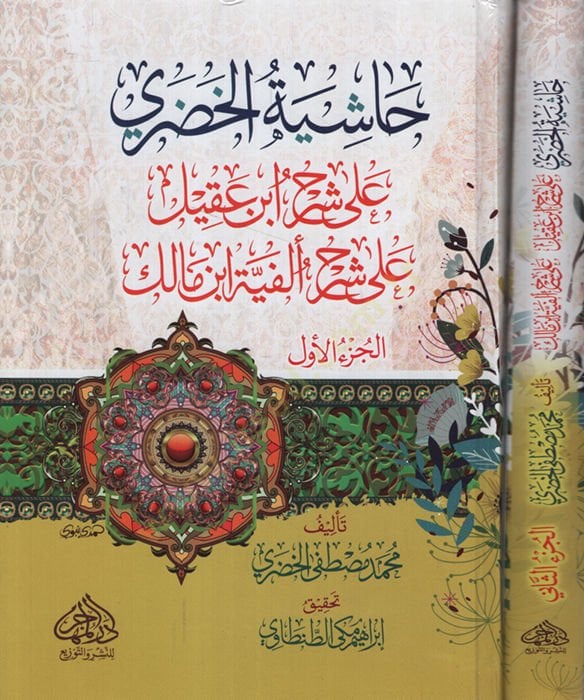 حاشية الخضري
على شرح ابن عقيل
على شرح ألفية ابن مالك
الجزء الأول
تأليف
محمد مصطفى الخضري
تحقيق
إبراهيم مكي الطنطاوي
للنشر والتوزيع
حاشية الخضري
على شرح ابن عقيل
على شرح ألفية ابن مالك
تأليف
محمد مصطفى الخضري
الجزء الثاني
للنشر والتوزيع